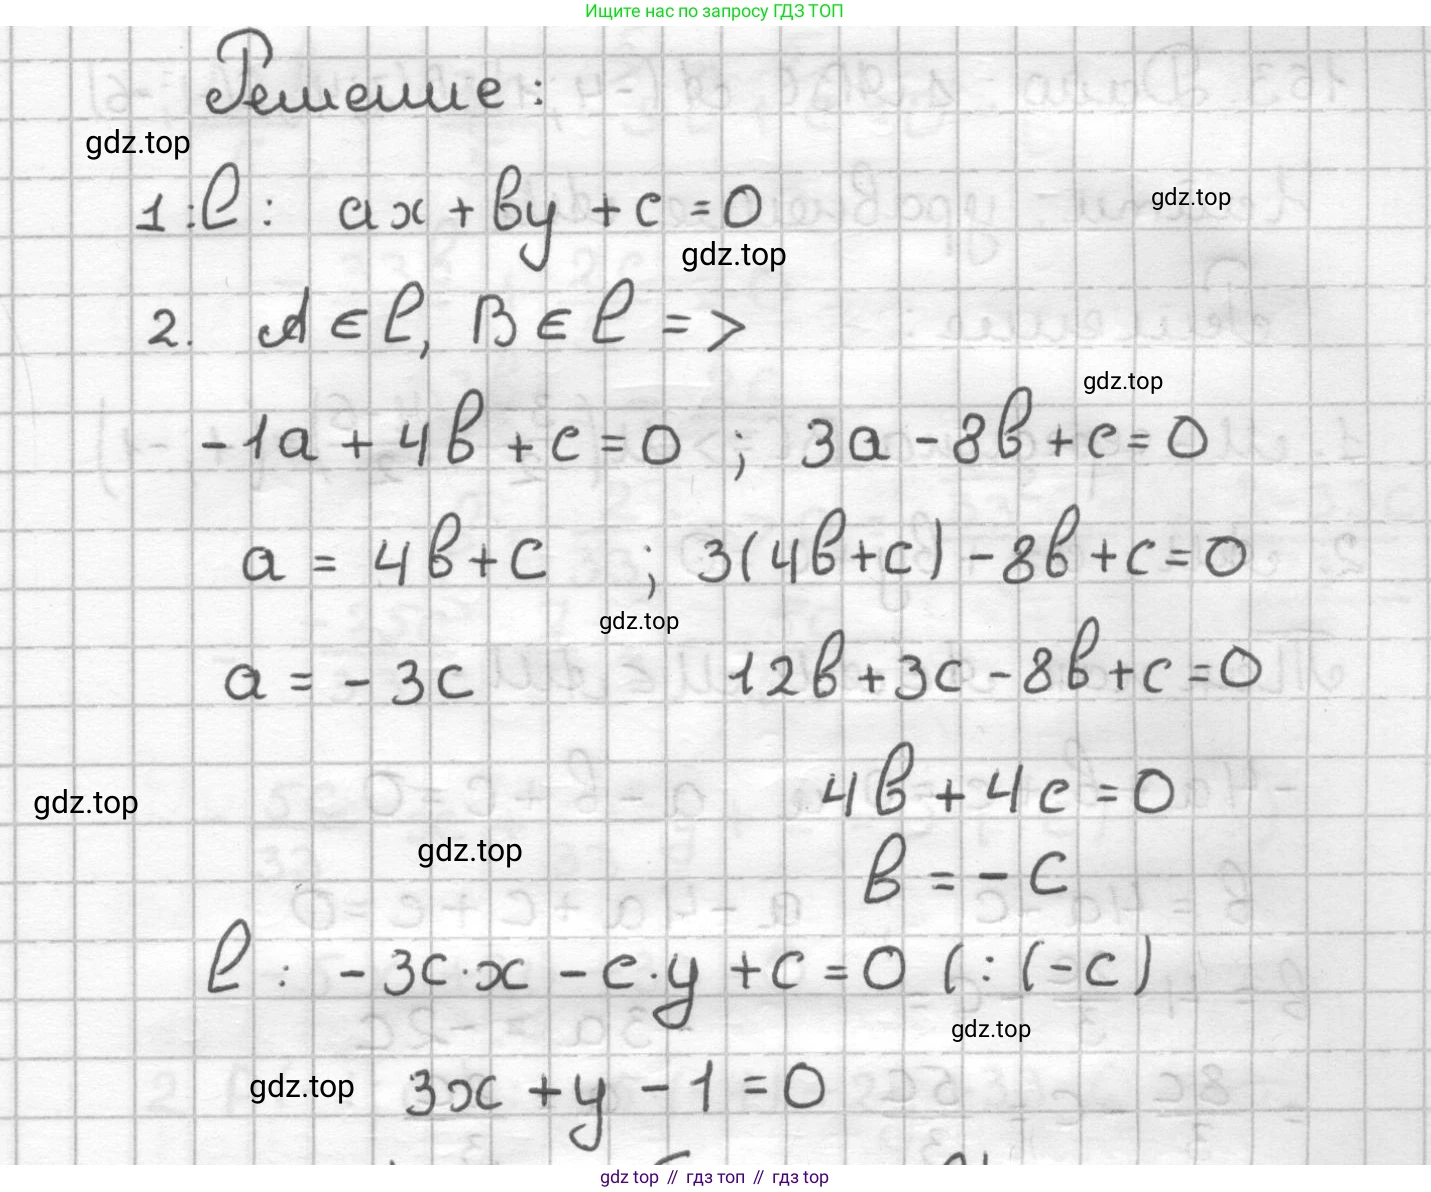 Ищите нас по запросу ГДЗ ТОП
Решение:
gdz.top
1: l: ax + вy + c = 0
gdz.top
gdz.top
2. A ∈ l, B ∈ l =>
gdz.top
-1a + 4в + c = 0 ; 3a - 8в + c = 0
a = 4в + c ; 3(4в + c) - 8в + c = 0
gdz.top
a = - 3c 12в + 3c - 8в + c = 0
gdz.top
4в + 4c = 0
gdz.top
в = - c
l : - 3c·x - c·y + c = 0 (: (-c)
gdz.top
gdz.top
3x + y - 1 = 0
gdz top // гдз топ // gdz top